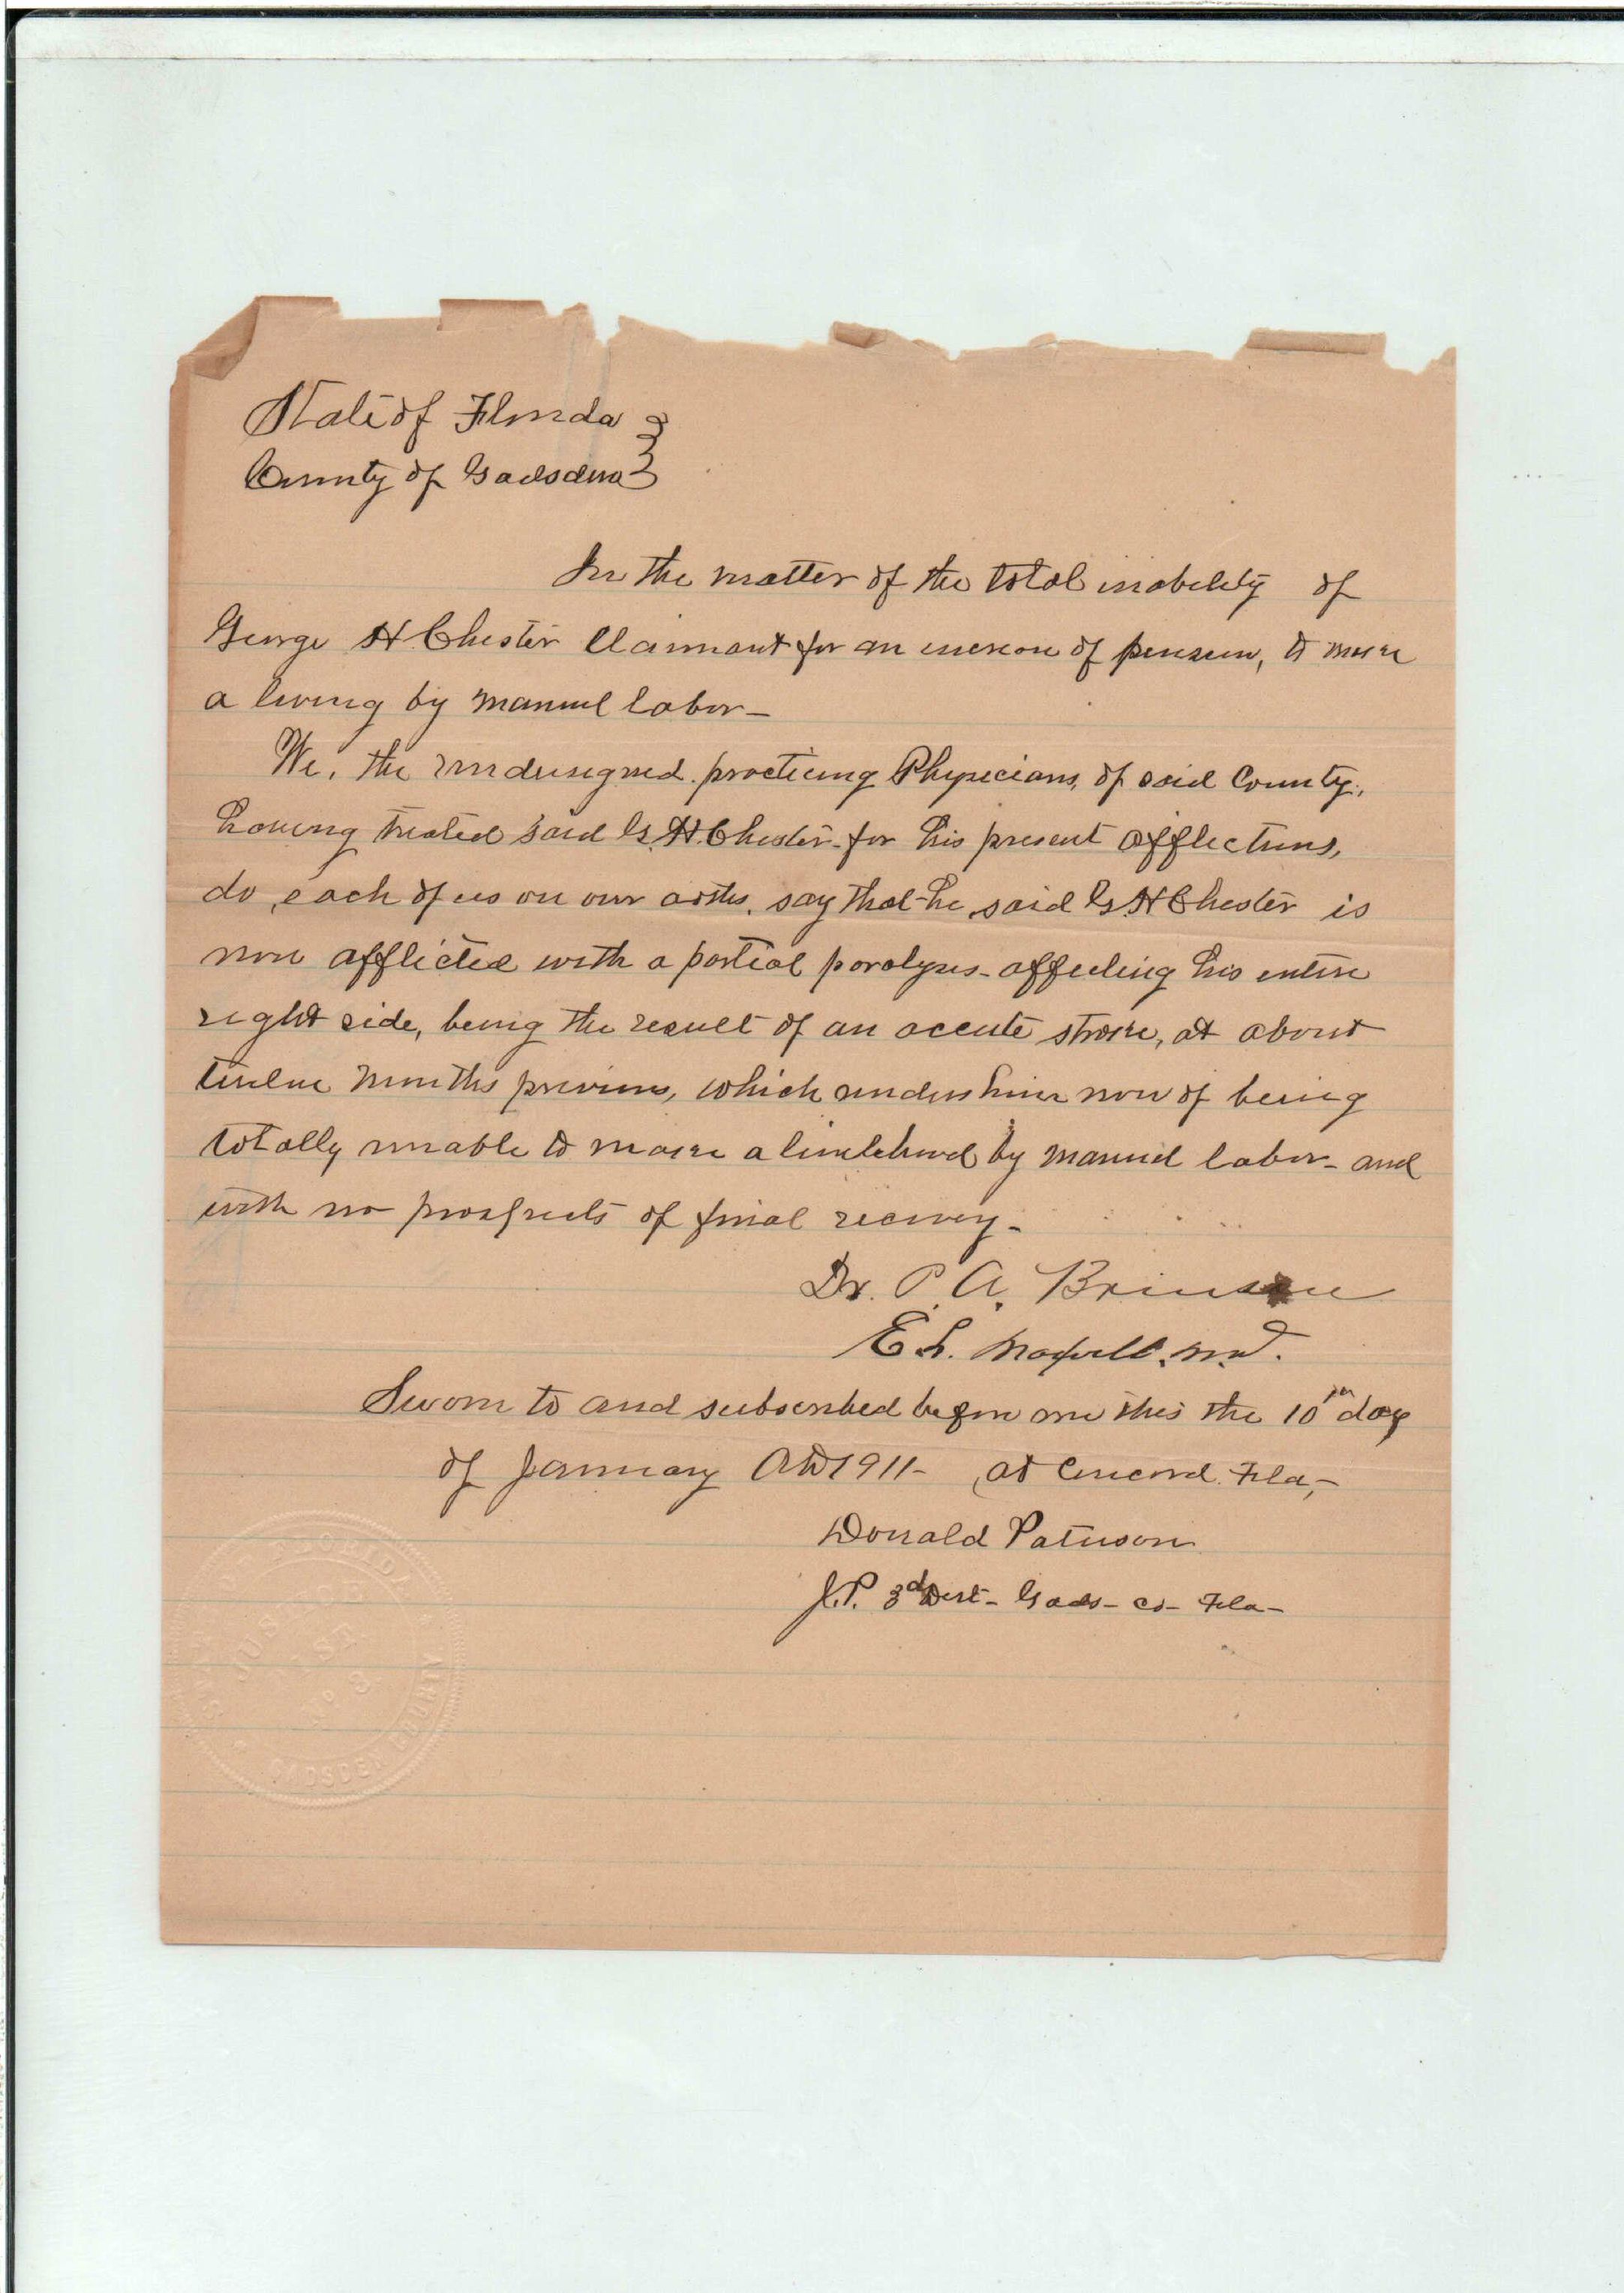 State of Florida }
County of Gadsden }
In the matter of the total inability of
George H Chester Claimant for an increase of pension, to make
a living by manuel labor-
We, the undersigned practicing Physicians, of said County,
having treated said G. H. Chester- for his present afflections,
do, each of us on our oaths, say that he, said G. H Chester is
now afflicted with a partial paralysis- affecting his entire
right side, being the result of an accute stroke, at about
twelve months previous, which renders him now of being
totally unable to make a livelihood by manuel labor- and
with no prospects of final recovery-
Dr. P. A. Brinson
E. L. Maxwell. M.D.
Sworn to and subscribed before me this the 10th day
of January AD 1911- at Concord. Fla,-
Donald Paterson
J.P. 3d Dist- Gads- co- Fla-
FLORIDA
JUSTICE
DIST.
No 3
GADSDEN COUNTY